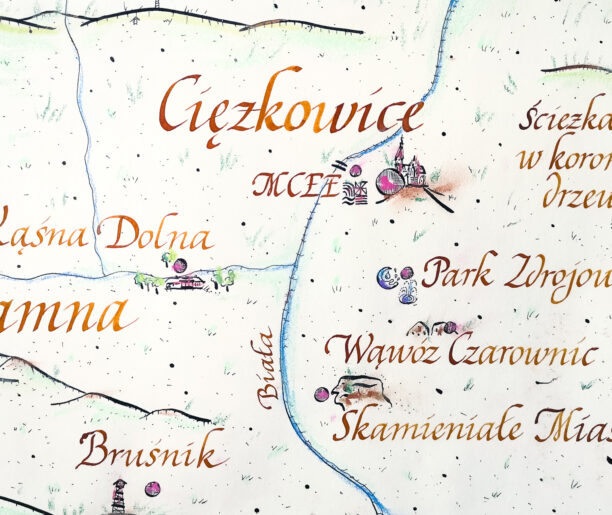 Ciężkowice
Ścieżka
w koron
drzew
MCEE
Kąśna Dolna
Park Zdrojow
amna
Wąwóz Czarownic
Biała
Skamieniałe Mias
Bruśnik